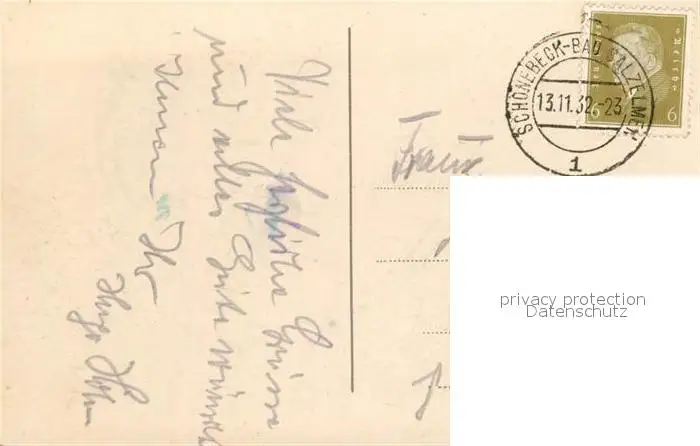 Viele fröhliche Grüsse
und alles Gute wünscht
Ihnen Ihr
Hugo
SCHÖNEBECK-BAD SALZELMEN
13.11.32.-23
1
6 6
Frau
privacy protection
Datenschutz